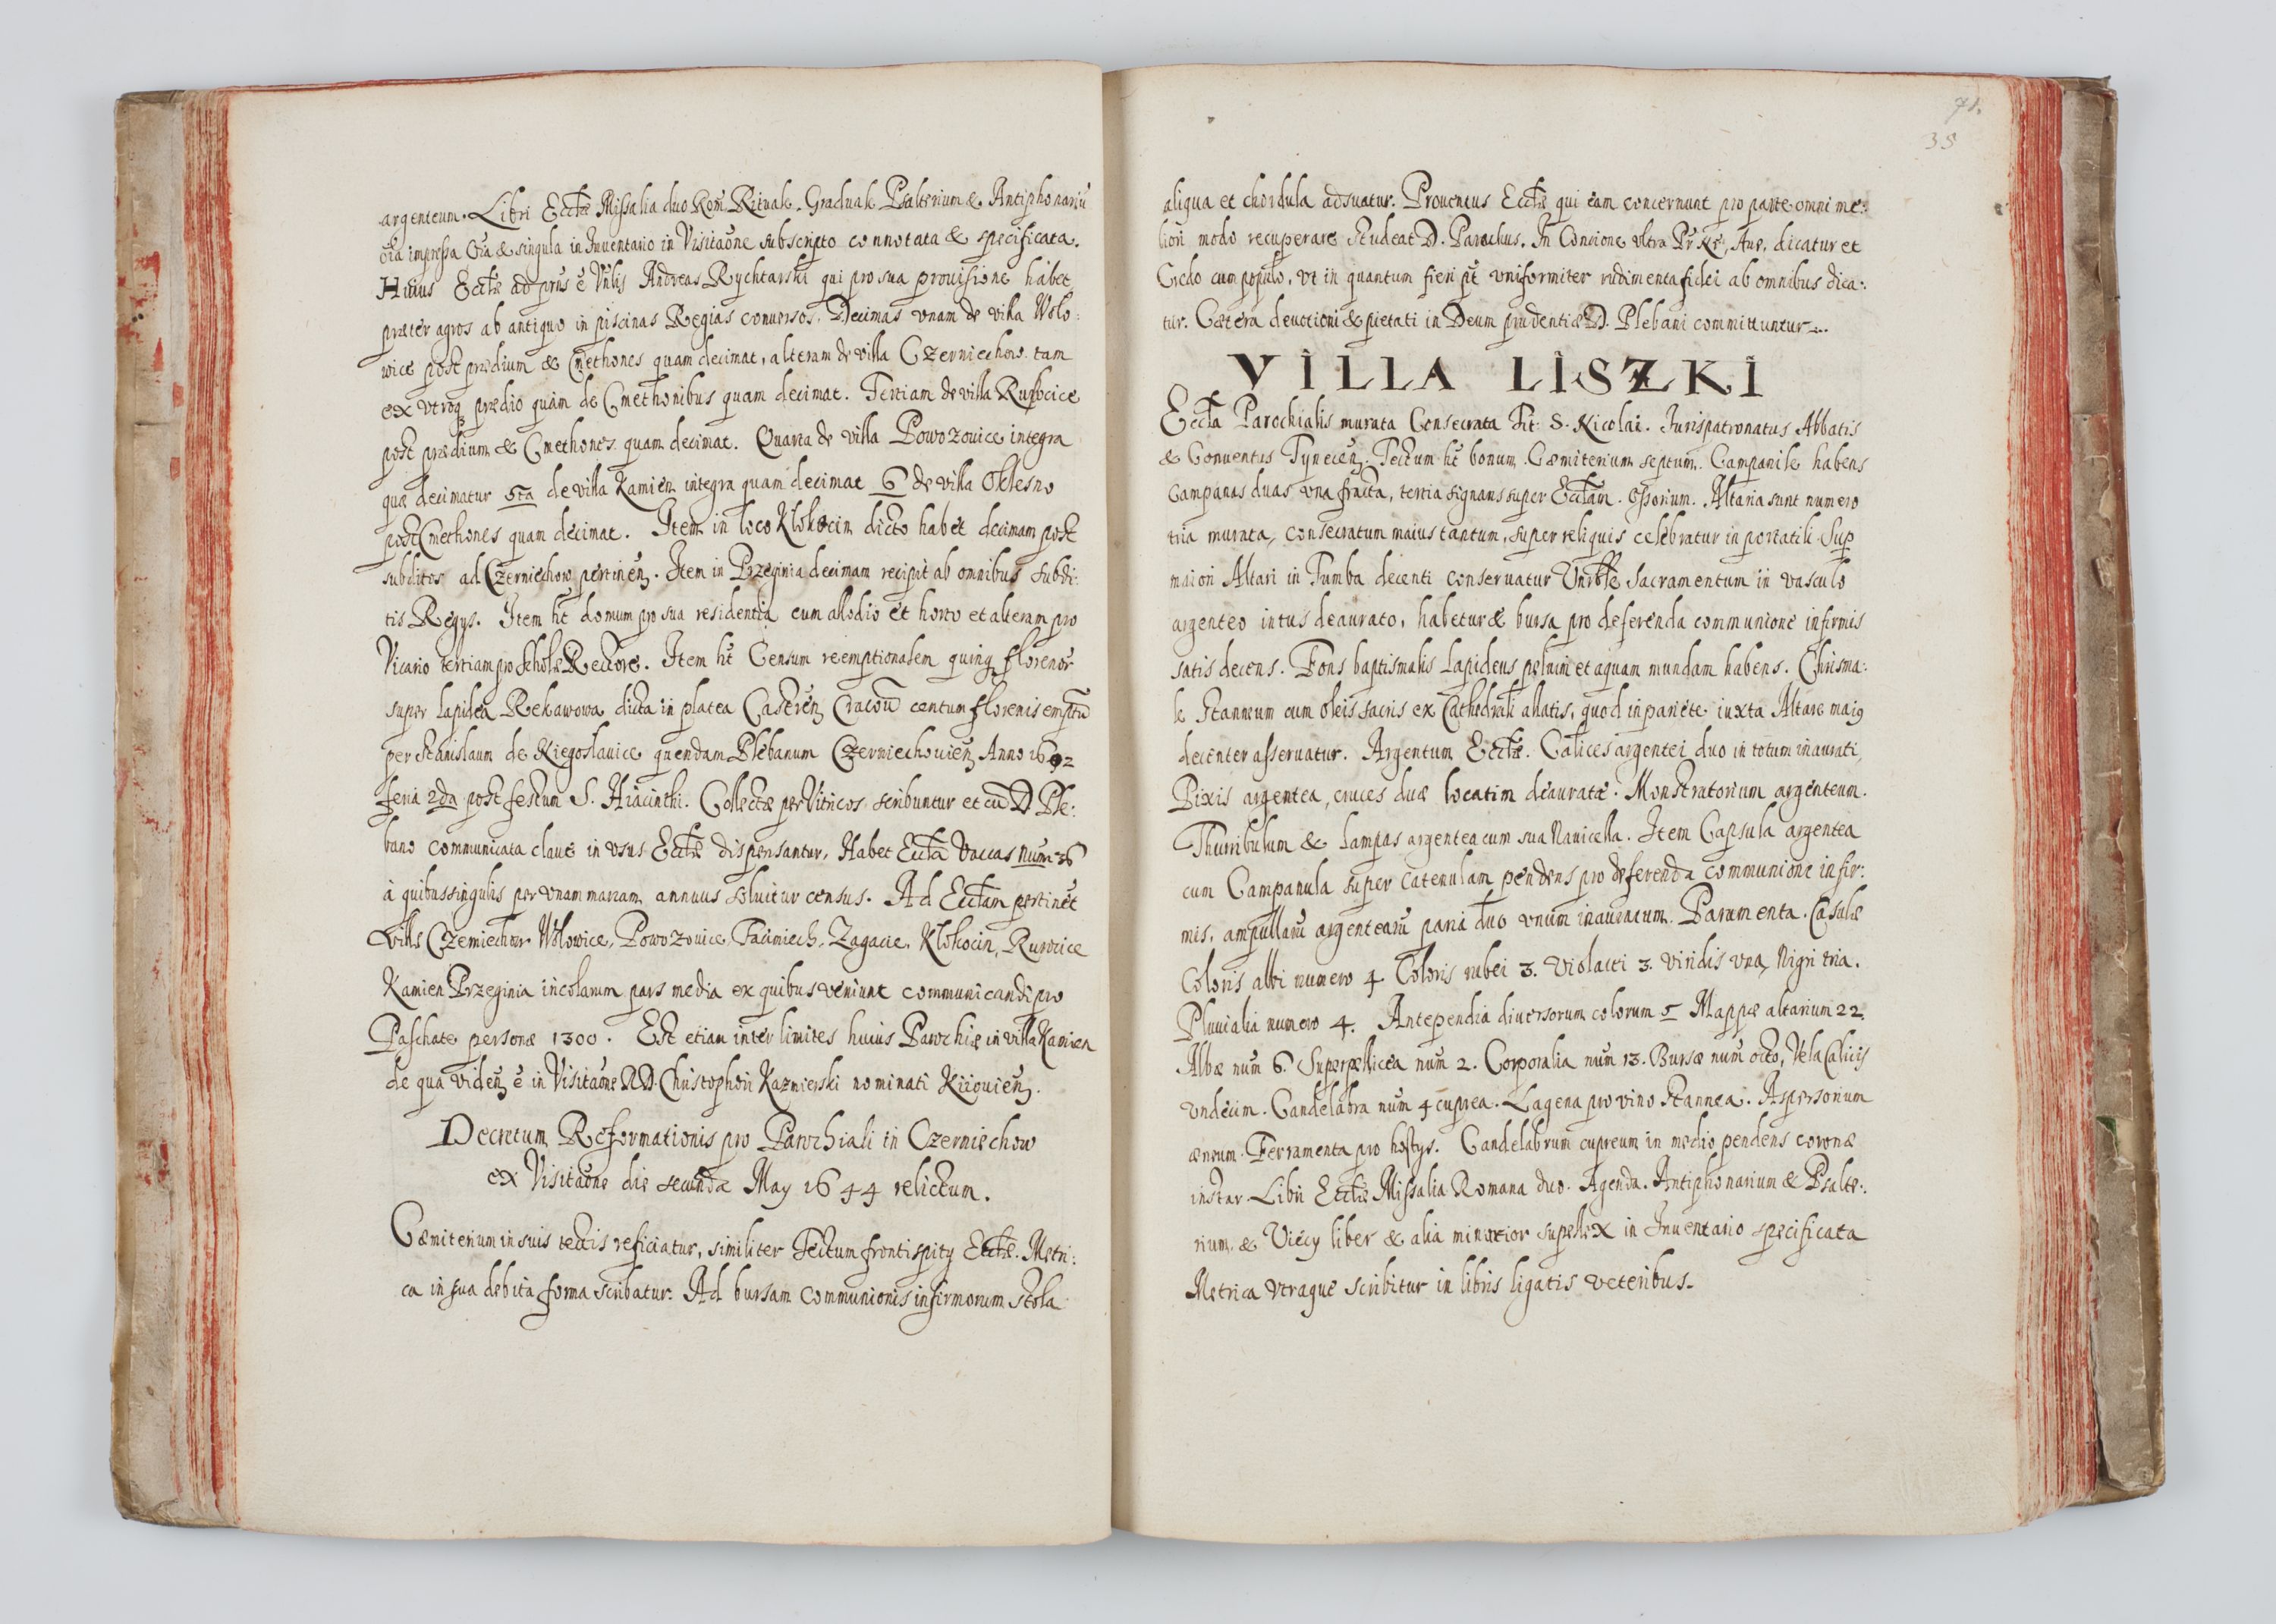 argenteum. Libri Ecctæ Missalia duo Rom̃. Rituale. Graduale Psalterium & Antiphonariũ
oĩa impressa Oĩa & singula in Inuentario in Visitaõne subscripto connotata & specificata.
Huius Ecctæ ad prñs ẽ Vnlis Andreas Rychtarski qui pro sua prouisione habet
præter agros ab antiquo in piscinas Regias conuersos. Decimas vnam de villa Wolo:
wice post prædium & Cmethones quam decimat, alteram de villa Czerniechow tam
ex vtroq prædio quàm de Cmethonibus quam decimat. Tertiam de villa Rusocice
post prædium & Cmethones quam decimat. Quarta de villa Powozowice integra
quæ decimatur 5ta de villa Kamień integra quam decimat 6 de villa Oklesno
post Cmethones quam decimat. Item in loco Klokocin dicto habet decimam post
subditos ad Czerniechow pertineñ. Item in Przeginia decimam recipit ab omnibus subdi:
tis Regys. Item ht̃ domum pro sua residentia cum allodio et horto et alteram pro
Vicario tertiam pro Scholæ Rectore. Item ht̃ Censum reemptionalem quinq florenor
super lapidea Rekawowa dicta in platea Castreñ Cracou̅ centum florenis emptũ
per Stanislaum de Kiegoslauice quendam Plebanum Czerniechouieñ Anno 1602
feria 2da post festum S. Hiacinthi. Collectæ per Vitricos scribuntur et cũ D Ple:
bano communicata claue in vsus Ecctæ dispensantur, Habet Eccta vaccas num 36
à quibus singulis per vnam marcam annuus soluitur census. Ad Ecctam pertinet
Villæ Czerniechow Wolowice, Powozowice, Facimiech, Zagacie, Klokocin, Rusocice
Kamien Przeginia incolarum pars media ex quibus veniunt communicandi pro
Paschate personæ 1300. Est etiam inter limites huius Parochiæ in villa Kamien
de qua videñ ẽ in Visitaõne RD. Christophori Kazmierski nominati Kiiouieñ.
Decretum Reformationis pro Parochiali in Czerniechow
ex Visitaõne die secunda May 1644 relictum.
Cæmiterium in suis tectis reficiatur, similiter Tectum frontispity Ecctæ. Metri:
ca in sua debita forma scribatur. Ad bursam communionis infirmorum stola
71.
35
aliqua et chordula adsuatur. Prouentus Ecctæ qui eam concernunt pro parte omni me:
liori modo recuperare studeat D. Parochus. In Concione vltra Pr̃ Nr̃, Aue, dicatur et
Credo cum populo, vt in quantum fieri pt̃ vniformiter rudimenta fidei ab omnibus dica:
tur. Cætera deuotioni & pietati in Deum prudentiæ D. Plebani committuntur.
VILLA LISZKI
Eccta Parochialis murata Consecrata Tit: S. Nicolai. Iurispatronatus Abbatis
& Conuentus Tyneceñ. Tectum ht̃ bonum. Cæmiterium septum. Campanile habens
campanas duas vna fracta, tertia signans super Ecctam. Ossorium. Altaria sunt numero
tria murata, consecratum maius tantum, super reliquis celebratur in portatili. Sup
maiori Altari in Tumba decenti conseruatur Vnrble Sacramentum in vasculo
argenteo intus deaurato, habetur & bursa pro deferenda communione infirmis
satis decens. Fons baptismalis lapideus peluim et aquam mundam habens. Chrisma:
le stanneum cum oleis sacris ex Cathedrali allatis, quod in pariete iuxta Altare maiq
decenter asseruatur. Argentum Ecctæ. Calices argentei duo in totum inaurati,
Pixis argentea, cruces duæ locatim deauratæ. Monstratorium argenteum.
Thurribulum & lampas argentea cum sua Nauicella. Item Capsula argentea
cum Campanula super catenulam pendens pro deferenda communione infir:
mis, ampullarũ argentearũ paria duo vnum inauratum. Paramenta. Casulæ
Coloris albi numero 4 Coloris rubei 3. violacei 3. viridis vna, Nigri tria.
Pluuialia numero 4. Antependia diuersorum colorum 5 Mappæ altarium 22.
Albæ num̃ 6. Superpellicea num̃ 2. Corporalia num̃ 13. Bursæ num̃ octo, Vela Calicis
vndecim. Candelabra num̃ 4 cuprea. Lagena pro vino stannea. Aspersorium
æneum. Ferramenta pro hostys. Candelabrum cupreum in medio pendens coronæ
instar. Libri Ecctæ Missalia Romana duo. Agenda. Antiphonarium & Psalte:
rium, & Viecy liber & alia minutior supellex in Inuentario specificata
Metrica vtraque scribitur in libris ligatis veteribus.